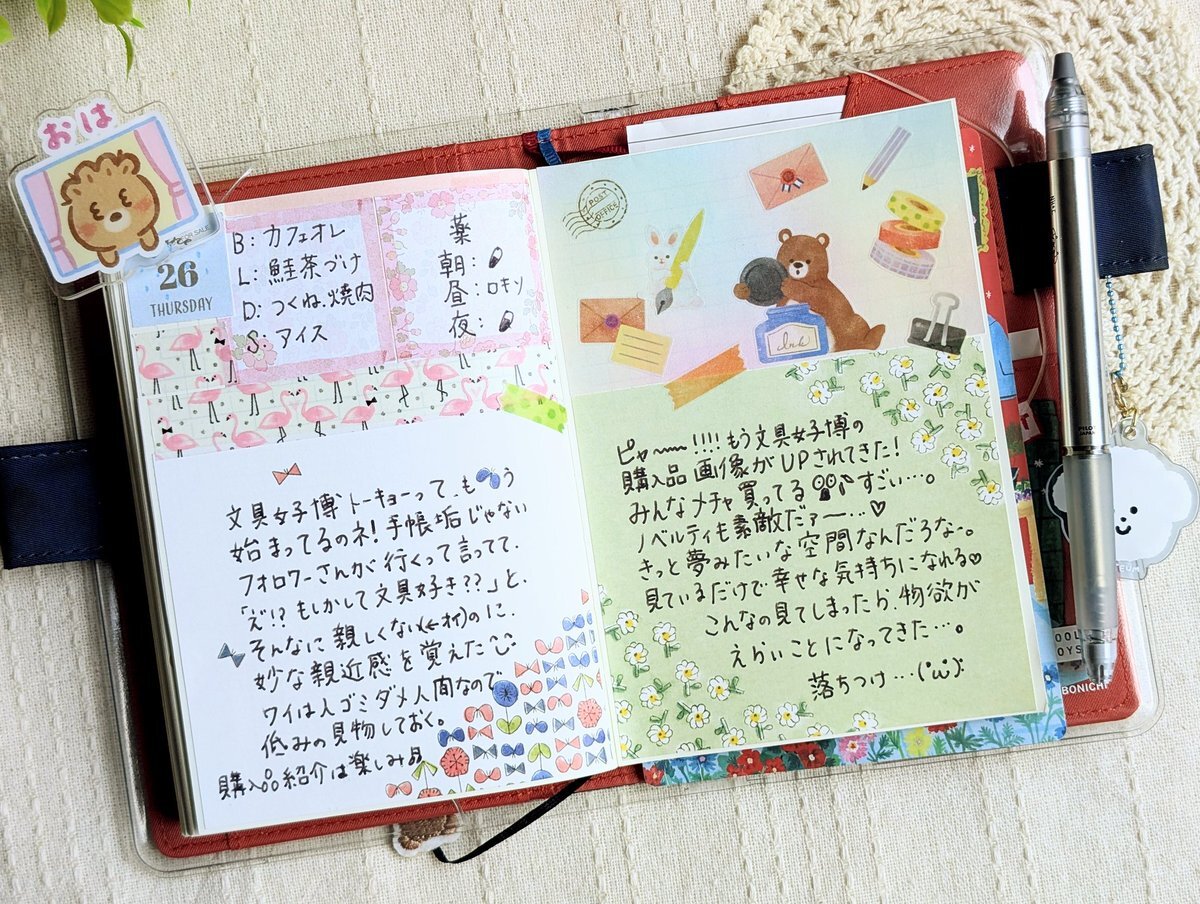 おは
26
THURSDAY
B: カフェオレ
L: 鮭茶づけ
D: つくね、焼肉
S: アイス
薬
朝:
昼: ロキソ
夜:
文具女子博トーキョーって、もう
始まってるのネ!手帳垢じゃない
フォロワーさんが行くって言ってて、
「え!?もしかして文具好き??」と、
そんなに親しくない(←オイ)のに、
妙な親近感を覚えた
ワイは人ゴミダメ人間なので
低みの見物しておく。
購入品紹介は楽しみ♫
POST
OFFICE
Ink
ピャ〜〜!!!!もう文具女子博の
購入品画像がUPされてきた!
みんなメチャ買ってるすごい…。
ノベルティも素敵だァー…♡
きっと夢みたいな空間なんだろな〜。
見ているだけで幸せな気持ちになれる♡
こんなの見てしまったら、物欲が
えらいことになってきた…。
落ちつけ…(˙ω˙)
PILOT
JAPAN
BONICHI